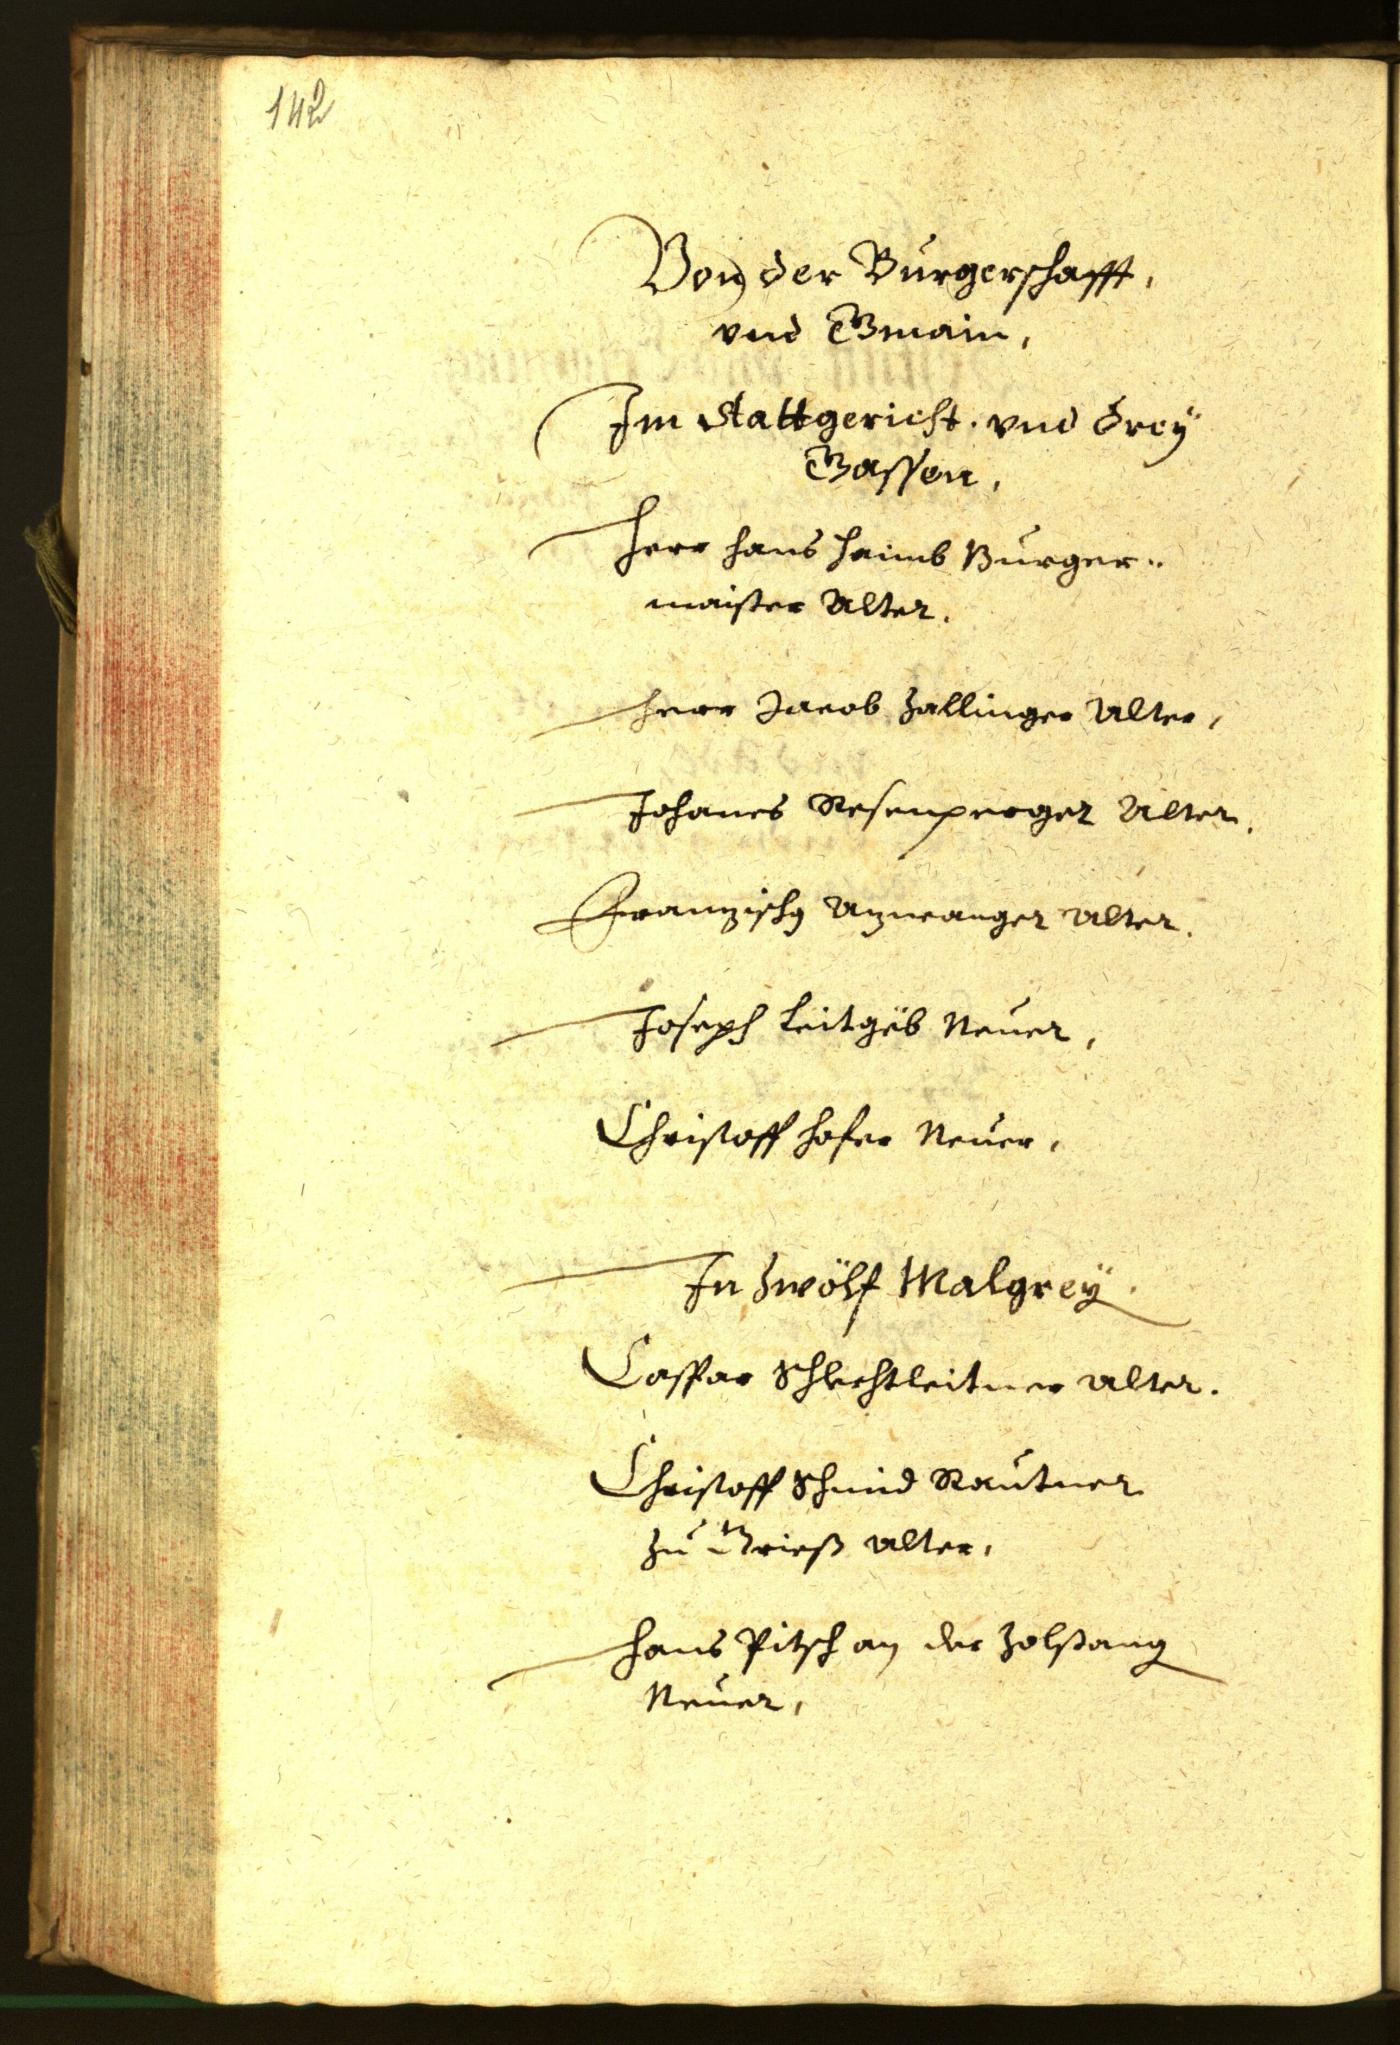 142
Von der Burgerschafft,
vnd Gmain,
Im Stattgericht. vnd Drey
Gassen,
Herr Hans Haimb Burger-
maister Alter.
Herr Jacob Zallinger Alter,
Johanes Resenperger Alter.
Frannzisch Azwanger Alter.
Joseph Leitgëb Neuer,
Christoff Hofer Neuer,
In Zwölf Malgreÿ.
Caspar Schlechtleitner Alter.
Christoff Schmid Rautner
Zu Grieß Alter,
Hans Pitsch an der Zolstang
Neuer,